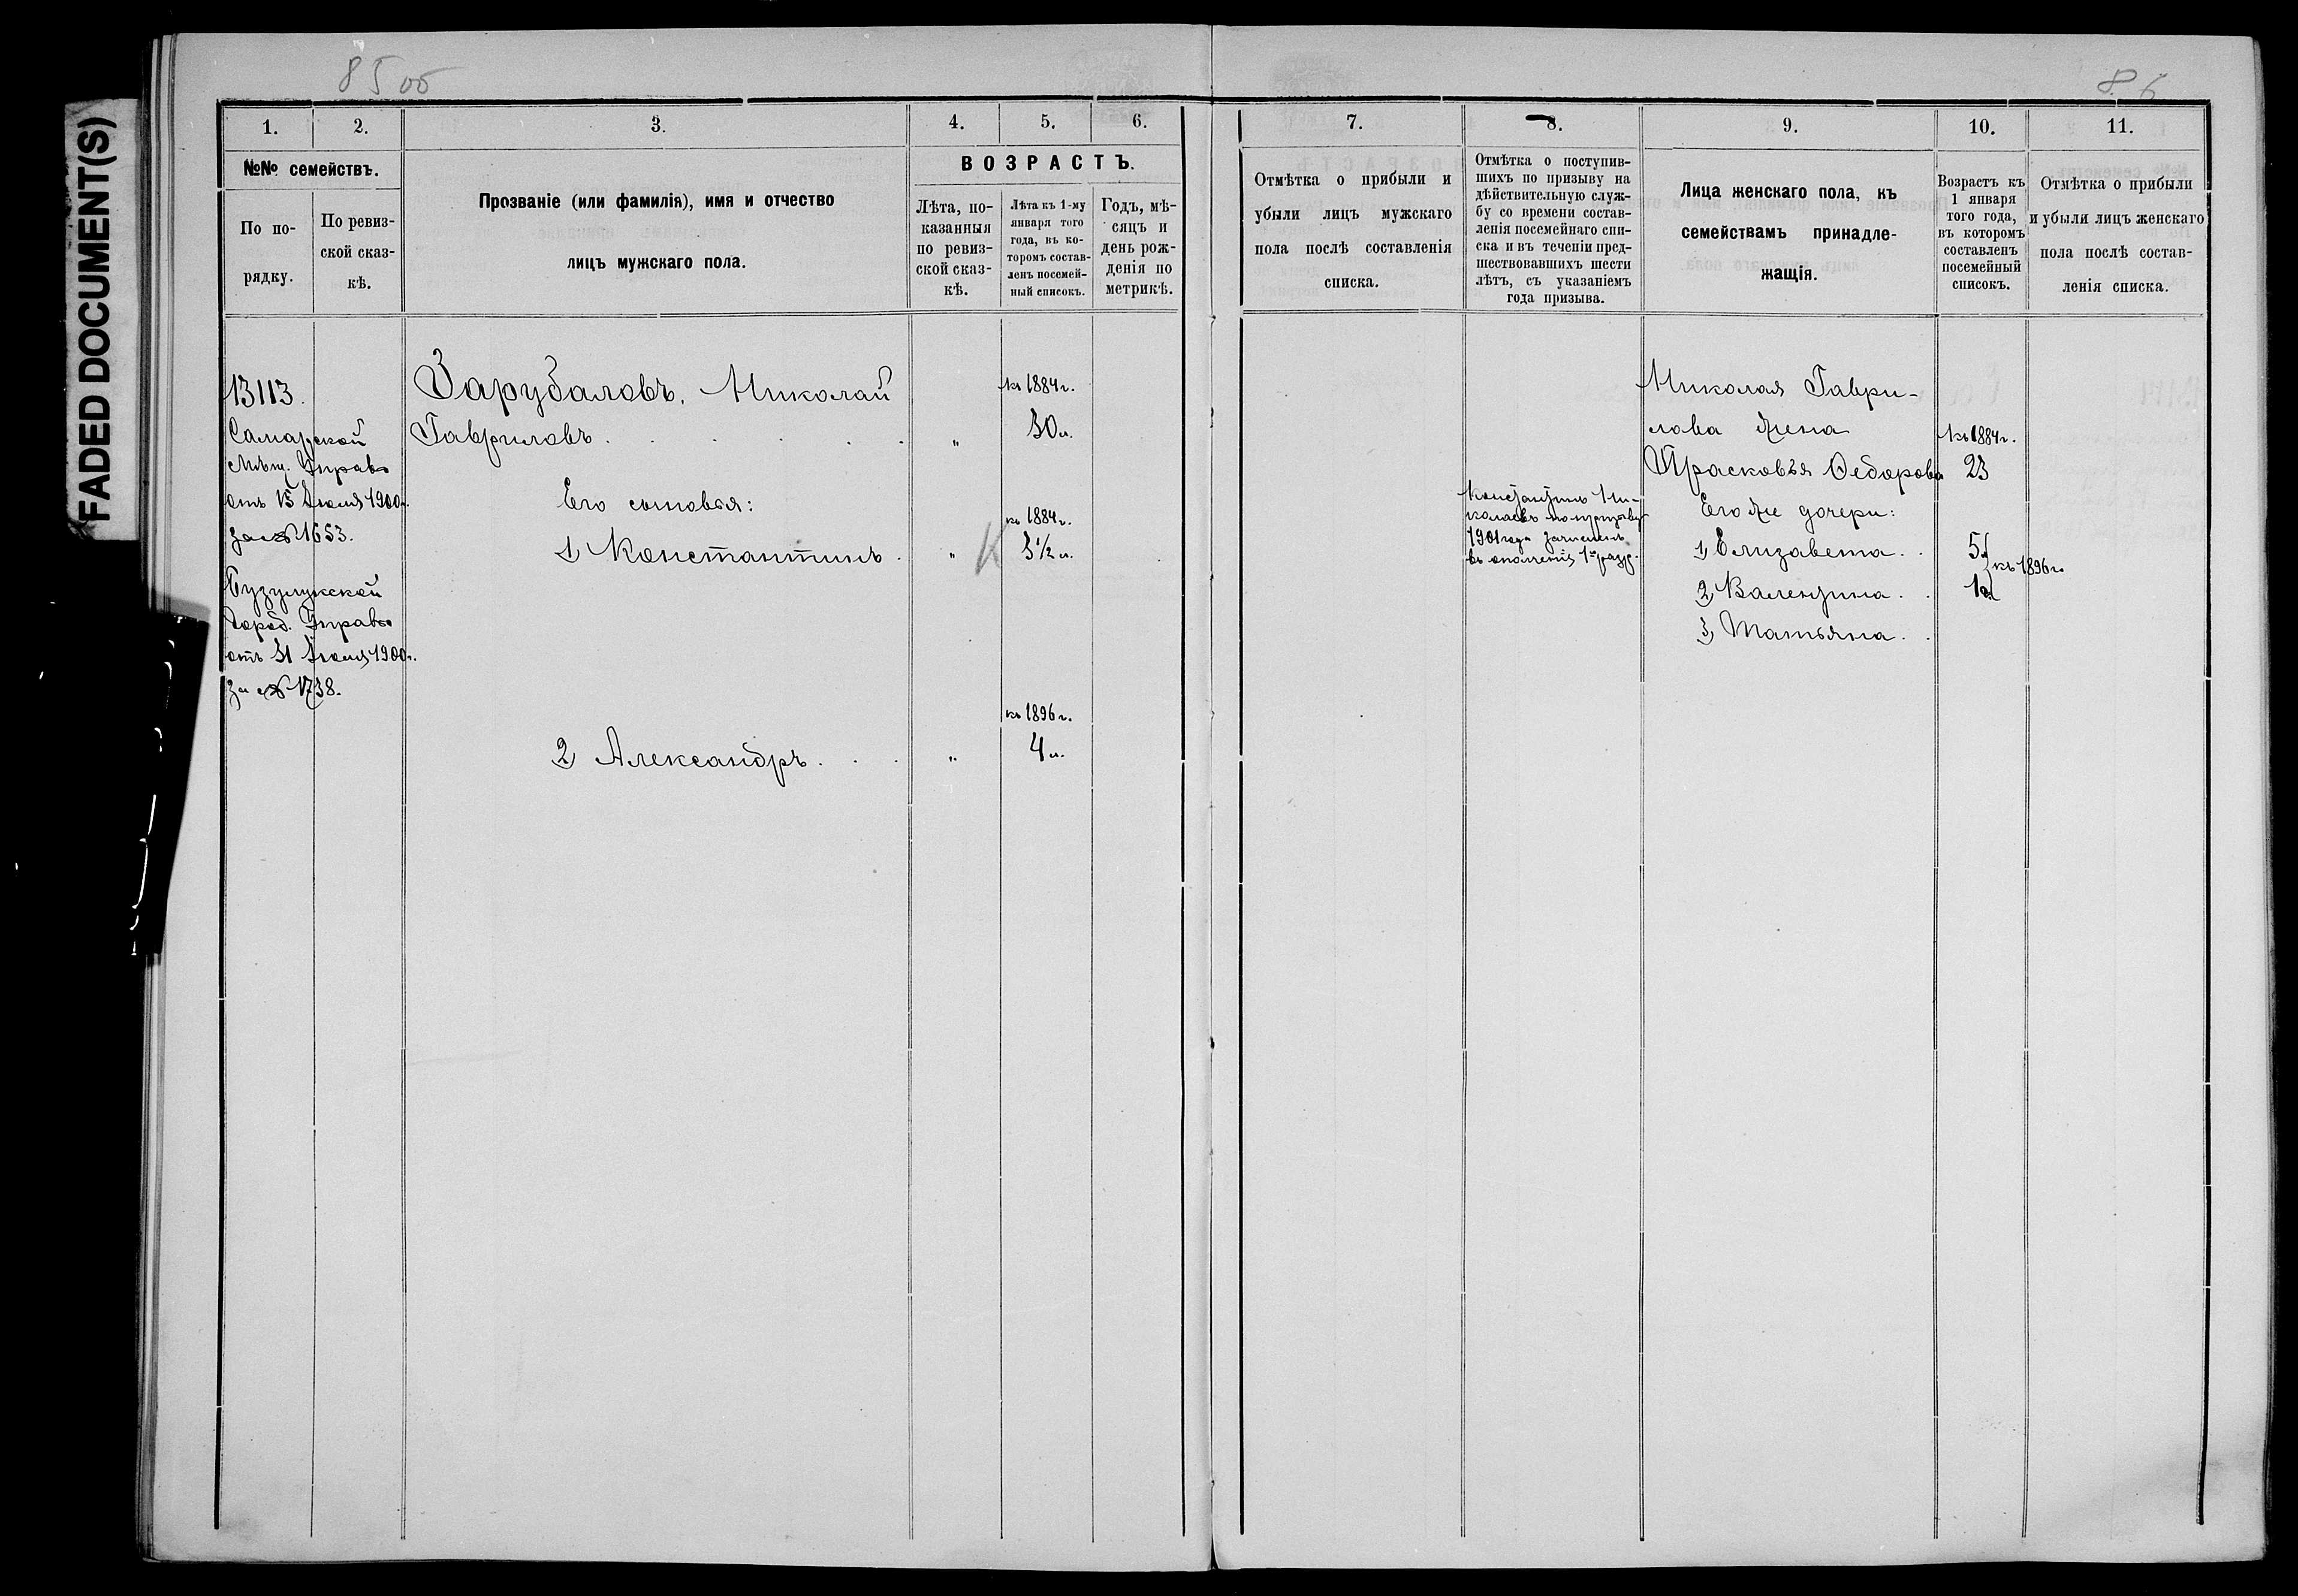 FADED DOCUMENT(S)
85 об
86
1.
2.
3.
4.
5.
6.
№№ семействъ.
По по-
рядку.
По ревиз-
ской сказ-
кѣ.
Прозваніе (или фамилія), имя и отчество
лицъ мужскаго пола.
ВОЗРАСТЪ.
Лѣта, по-
казанныя
по ревиз-
ской сказ-
кѣ.
Лѣта къ 1-му
января того
года, въ ко-
торомъ состав-
ленъ посемей-
ный списокъ.
Годъ, мѣ-
сяцъ и
день рож-
денія по
метрикѣ.
13113.
Самарской
Мѣщ. Управы
отъ 15 Іюля 1900г.
за № 1653.
Бузулукской
Город. Управы
отъ 31 Іюля 1900г.
за № 1738.
Зарубаловъ, Николай
Гавриловъ . . . . .
Его сыновья:
1, Константинъ .
2, Александръ . . .
„
„
„
къ 1884 г.
30 л.
къ 1884 г.
3½ л.
къ 1896 г.
4 л.
7.
8.
9.
10.
11.
Отмѣтка о прибыли и
убыли лицъ мужскаго
пола послѣ составленія
списка.
Отмѣтка о поступив-
шихъ по призыву на
дѣйствительную служ-
бу со времени состав-
ленія посемейнаго спи-
ска и въ теченіи пред-
шествовавшихъ шести
лѣтъ, съ указаніемъ
года призыва.
Лица женскаго пола, къ
семействамъ принадле-
жащія.
Возрастъ къ
1 января
того года,
въ которомъ
составленъ
посемейный
списокъ.
Отмѣтка о прибыли
и убыли лицъ женскаго
пола послѣ состав-
ленія списка.
Константинъ Ни-
колаевъ по призыву
1901 года зачисленъ
въ ополченіе 1го разр.
Николая Гаври-
лова жена
Прасковья Ѳедорова
Его же дочери:
1, Елизавета . .
2, Валентина . .
3, Татьяна . .
къ 1884 г.
23
5 л.
1 г.
къ 1896 г.